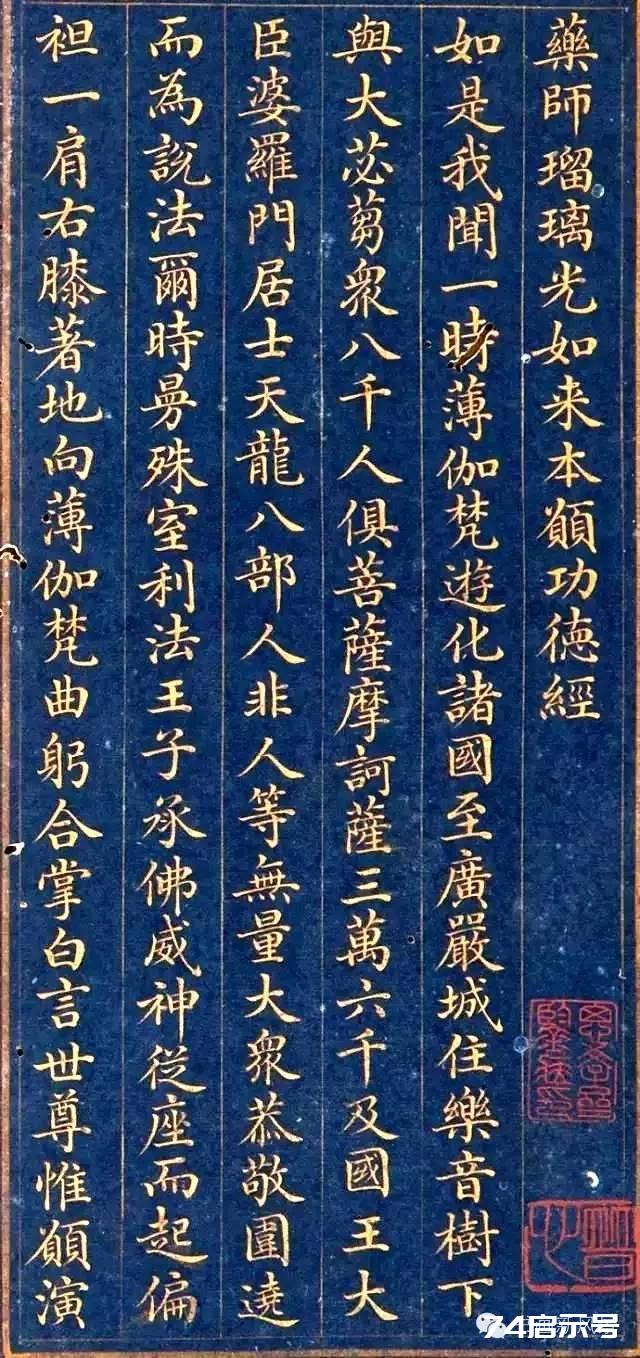 藥師瑠璃光如来本願功徳經
如是我聞一時薄伽梵遊化諸國至廣嚴城住樂音樹下
與大苾蒭衆八千人俱菩薩摩訶薩三萬六千及國王大
臣婆羅門居士天龍八部人非人等無量大衆恭敬圍遶
而為說法爾時曼殊室利法王子承佛威神從座而起偏
袒一肩右膝著地向薄伽梵曲躬合掌白言世尊惟願演
74启示号